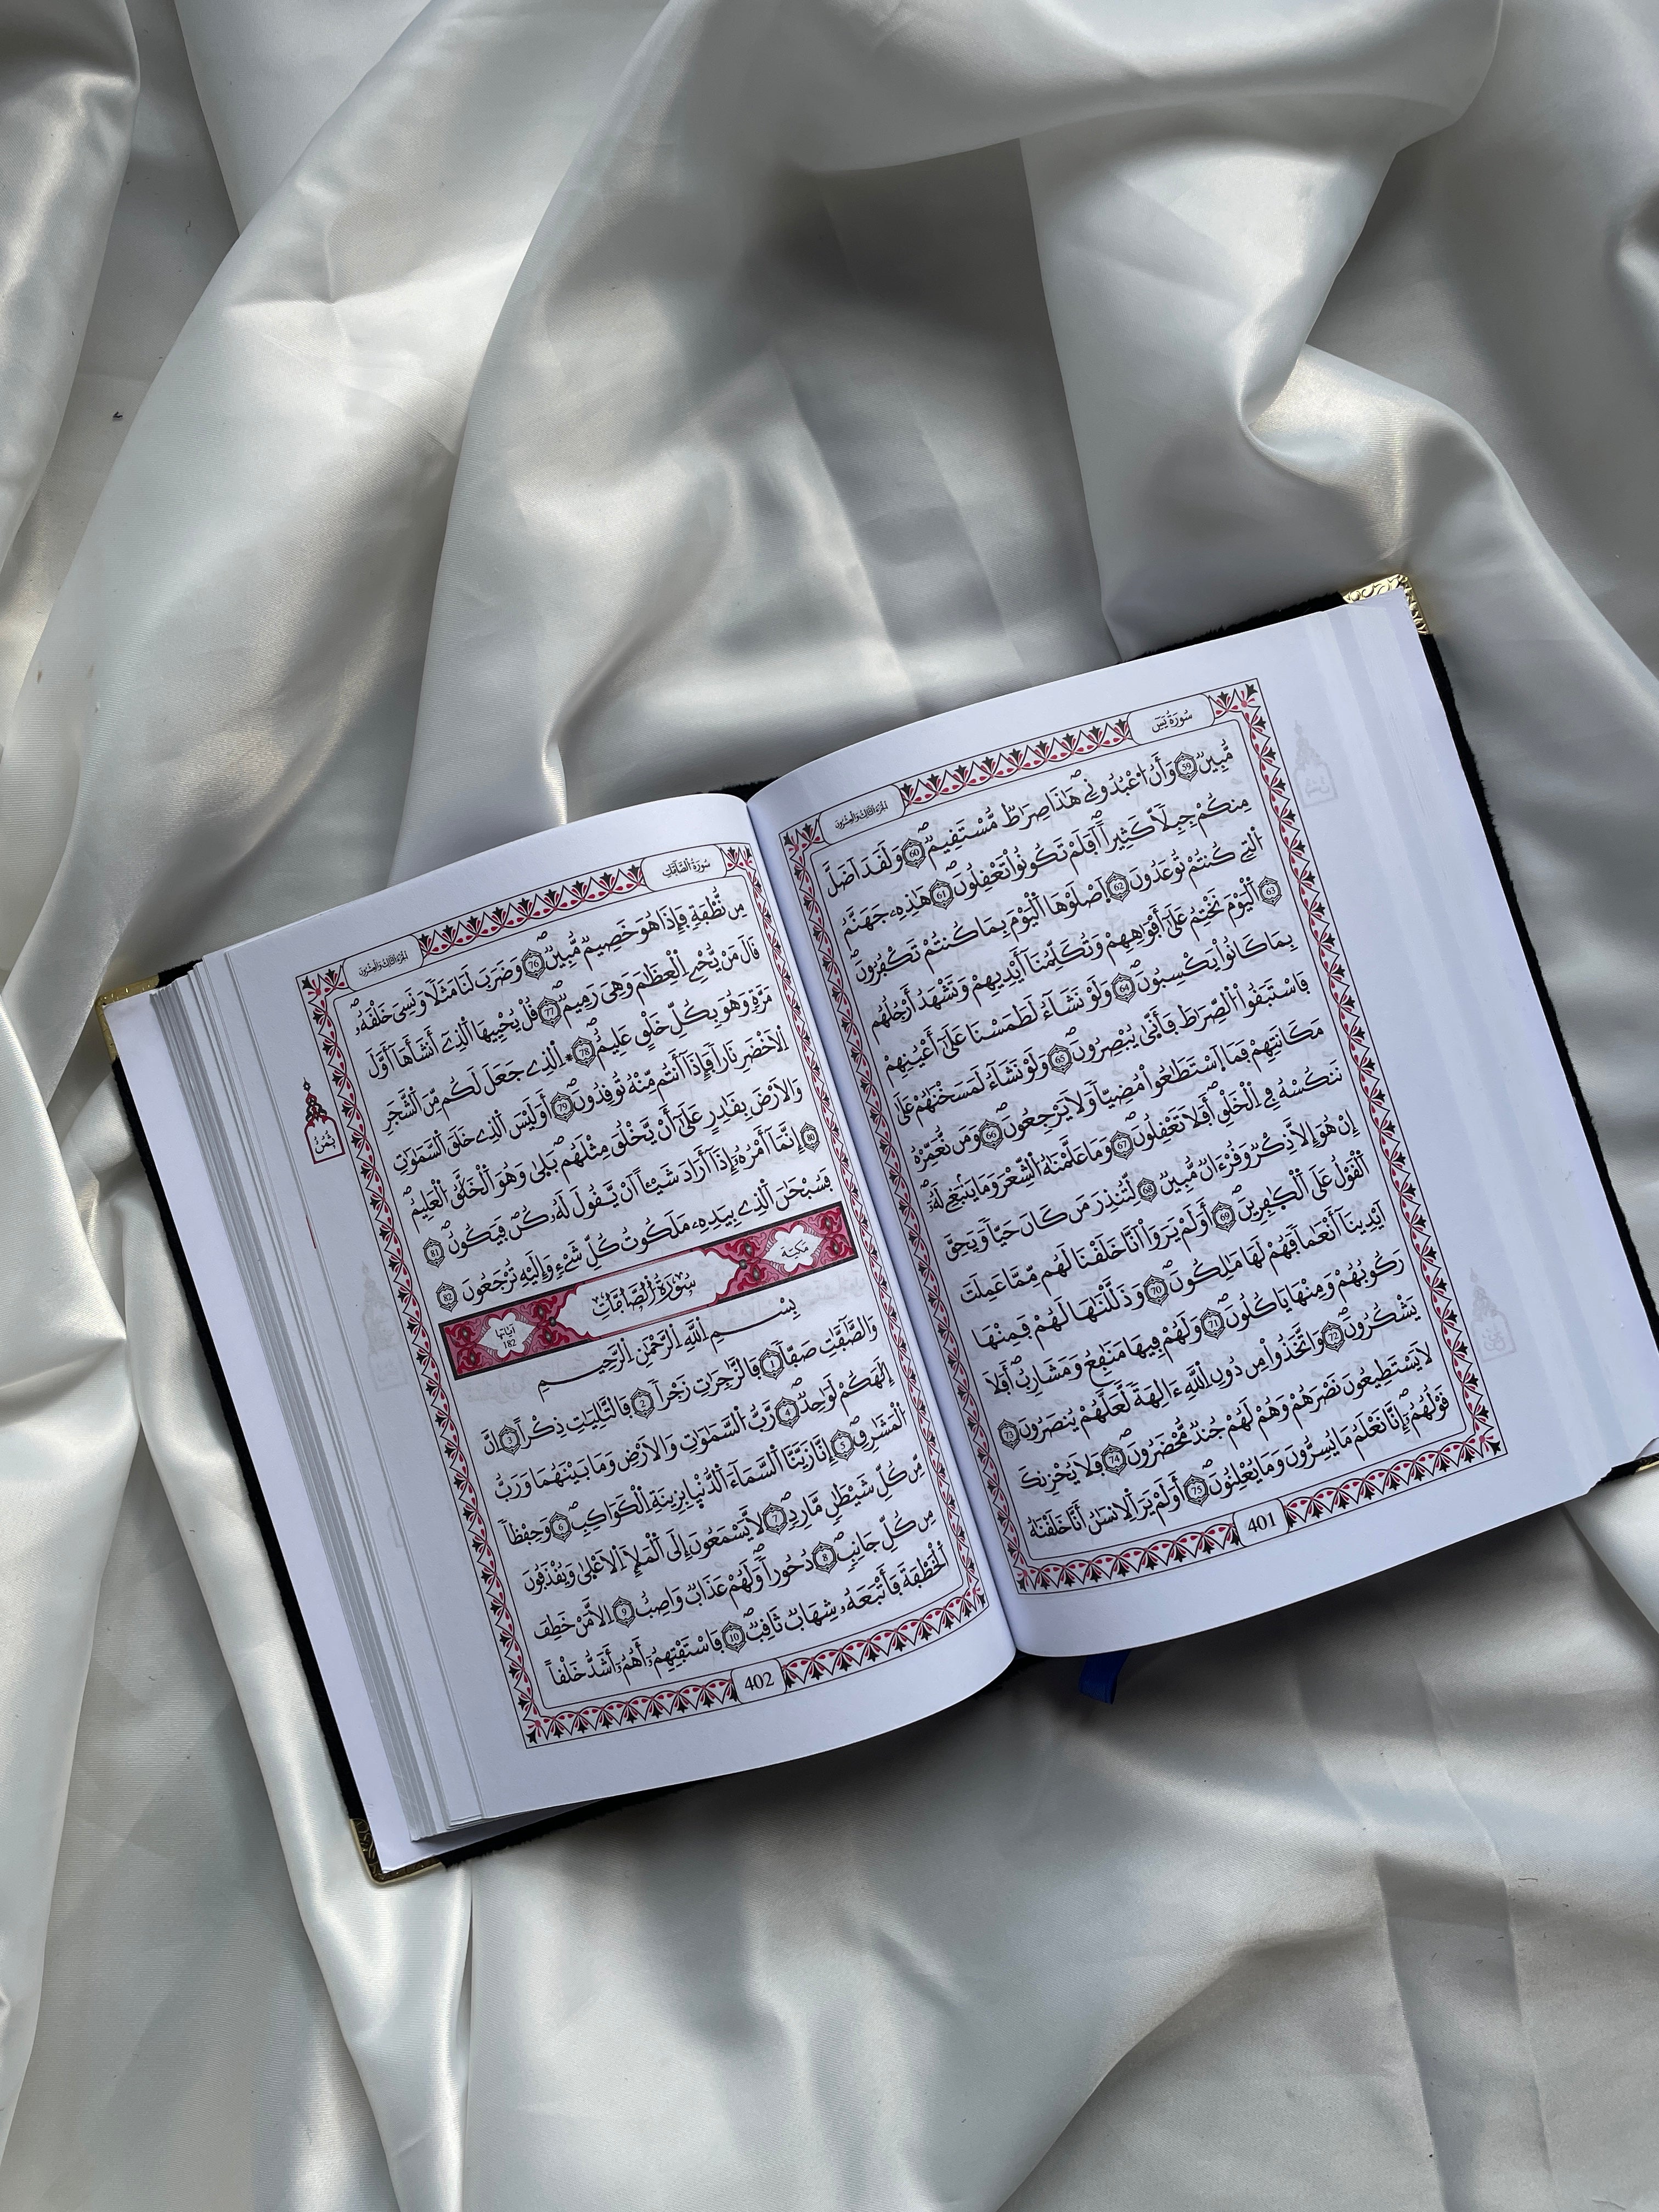 سُورَةُ يَسٓ
الجزء الثالث والعشرون
مُّبِينٌ 59 وَأَنُ اعْبُدُونِي هَٰذَا صِرَٰطٌ مُّسْتَقِيمٌ 60 وَلَقَدَ اَضَلَّ
مِنكُمْ جِبِلّٗا كَثِيراً اَفَلَمْ تَكُونُواْ تَعْقِلُونَ 61 هَٰذِهِۦ جَهَنَّمُ
اُلَّتِي كُنتُمْ تُوعَدُونَ 62 اَصْلَوْهَا اَلْيَوْمَ بِمَا كُنتُمْ تَكْفُرُونَ
63 اَلْيَوْمَ نَخْتِمُ عَلَىٰٓ أَفْوَٰهِهِمْ وَتُكَلِّمُنَآ أَيْدِيهِمْ وَتَشْهَدُ أَرْجُلُهُم
بِمَا كَانُواْ يَكْسِبُونَ 64 وَلَوْ نَشَآءُ لَطَمَسْنَا عَلَىٰٓ أَعْيُنِهِمْ
فَاسْتَبَقُواْ الصِّرَٰطَ فَأَنَّىٰ يُبْصِرُونَ 65 وَلَوْ نَشَآءُ لَمَسَخْنَٰهُمْ عَلَىٰ
مَكَانَتِهِمْ فَمَا اَسْتَطَٰعُواْ مُضِيّٗا وَلَا يَرْجِعُونَ 66 وَمَن نُّعَمِّرْهُ
نَنكُسْهُ فِي اِلْخَلْقِ أَفَلَا تَعْقِلُونَ 67 وَمَا عَلَّمْنَٰهُ اُلشِّعْرَ وَمَا يَنۢبَغِي لَهُۥٓ
إِنْ هُوَ إِلَّا ذِكْرٌ وَقُرْءَانٌ مُّبِينٌ 68 لِّتُنذِرَ مَن كَانَ حَيّٗا وَيَحِقَّ
اَلْقَوْلُ عَلَى اَلْكَٰفِرِينَ 69 أَوَلَمْ يَرَوَاْ اَنَّا خَلَقْنَا لَهُم مِّمَّا عَمِلَتَ
اَيْدِينَآ أَنْعَٰماٗ فَهُمْ لَهَا مَٰلِكُونَ 70 وَذَلَّلْنَٰهَا لَهُمْ فَمِنْهَا
رَكُوبُهُمْ وَمِنْهَا يَاكُلُونَ 71 وَلَهُمْ فِيهَا مَنَٰفِعُ وَمَشَارِبُ أَفَلَا
يَشْكُرُونَ 72 وَاتَّخَذُواْ مِن دُونِ اِللَّهِ ءَالِهَةٗ لَّعَلَّهُمْ يُنصَرُونَ 73
لَا يَسْتَطِيعُونَ نَصْرَهُمْ وَهُمْ لَهُمْ جُندٌ مُّحْضَرُونَ 74 فَلَا يُحْزِنكَ
قَوْلُهُمُۥٓ إِنَّا نَعْلَمُ مَا يُسِرُّونَ وَمَا يُعْلِنُونَ 75 أَوَلَمْ يَرَ اَلِانسَٰنُ أَنَّا خَلَقْنَٰهُ
401
سُورَةُ الصَّٰٓفَّٰتِ
الجزء الثالث والعشرون
مِن نُّطْفَةٖ فَإِذَا هُوَ خَصِيمٌ مُّبِينٌ 76 وَضَرَبَ لَنَا مَثَلٗا وَنَسِيَ خَلْقَهُۥ
قَالَ مَنْ يُّحْيِ اِلْعِظَٰمَ وَهِيَ رَمِيمٌ 77 قُلْ يُحْيِيهَا اَلَّذِيٓ أَنشَأَهَآ أَوَّلَ
مَرَّةٖ وَهُوَ بِكُلِّ خَلْقٍ عَلِيمٌ 78 اِلَّذِي جَعَلَ لَكُم مِّنَ اَلشَّجَرِ
اِلَاخْضَرِ نَاراٗ فَإِذَآ أَنتُم مِّنْهُ تُوقِدُونَ 79 أَوَلَيْسَ اَلَّذِي خَلَقَ اَلسَّمَٰوَٰتِ
وَالَارْضَ بِقَٰدِرٍ عَلَىٰٓ أَنْ يَّخْلُقَ مِثْلَهُم بَلَىٰ وَهُوَ اَلْخَلَّٰقُ اُلْعَلِيمُ
80 إِنَّمَآ أَمْرُهُۥٓ إِذَآ أَرَادَ شَيْـٔاً اَنْ يَّقُولَ لَهُۥ كُن فَيَكُونُ 81
فَسُبْحَٰنَ اَلَّذِي بِيَدِهِۦ مَلَكُوتُ كُلِّ شَےْءٖ وَإِلَيْهِ تُرْجَعُونَ 82
ثُمُنُ
مَكِيَّة
سُورَةُ الصَّٰٓفَّٰتِ
آيَاتُهَا 182
بِسْمِ اِللَّهِ اِلرَّحْمَٰنِ اِلرَّحِيمِ
وَالصَّٰٓفَّٰتِ صَفّاٗ 1 فَالزَّٰجِرَٰتِ زَجْراٗ 2 فَالتَّٰلِيَٰتِ ذِكْراً 3 اِنَّ
إِلَٰهَكُمْ لَوَٰحِدٌ 4 رَّبُّ اُلسَّمَٰوَٰتِ وَالَارْضِ وَمَا بَيْنَهُمَا وَرَبُّ
اُلْمَشَٰرِقِ 5 إِنَّا زَيَّنَّا اَلسَّمَآءَ اَلدُّنْيَا بِزِينَةِ اِلْكَوَاكِبِ 6 وَحِفْظاٗ
مِّن كُلِّ شَيْطَٰنٖ مَّارِدٖ 7 لَّا يَسْمَعُونَ إِلَى اَلْمَلَإِ اِلَاعْلَىٰ وَيُقْذَفُونَ
مِن كُلِّ جَانِبٖ 8 دُحُوراٗ وَلَهُمْ عَذَابٌ وَاصِبٌ 9 اِلَّا مَنْ خَطِفَ
اَلْخَطْفَةَ فَأَتْبَعَهُۥ شِهَابٌ ثَاقِبٌ 10 فَاسْتَفْتِهِمُۥٓ أَهُمُۥٓ أَشَدُّ خَلْقاً
402